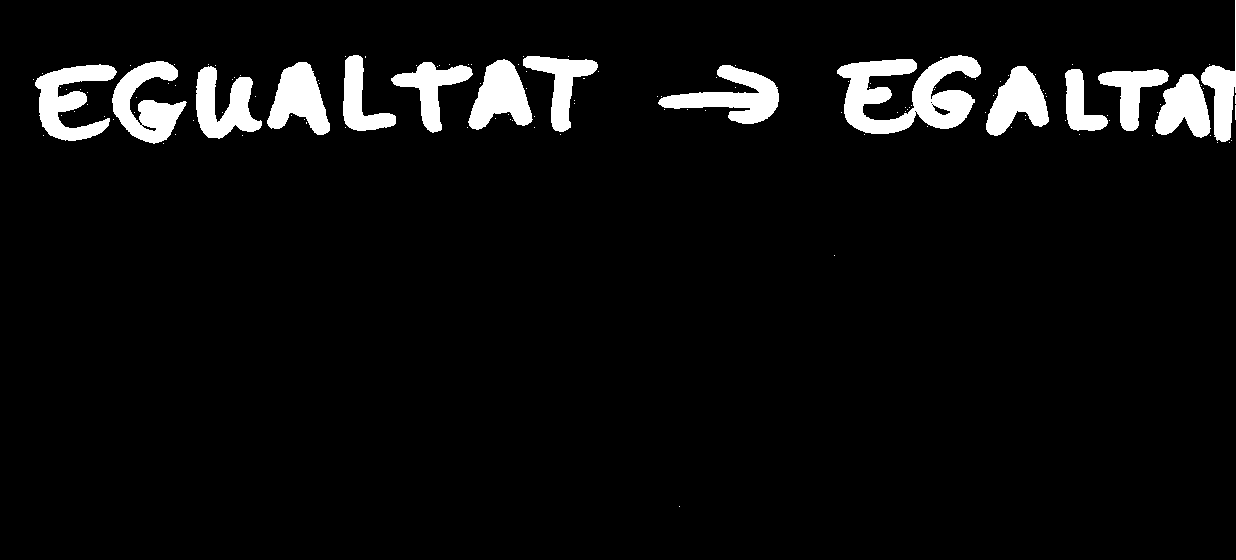 EGUALTAT → EGALTAT